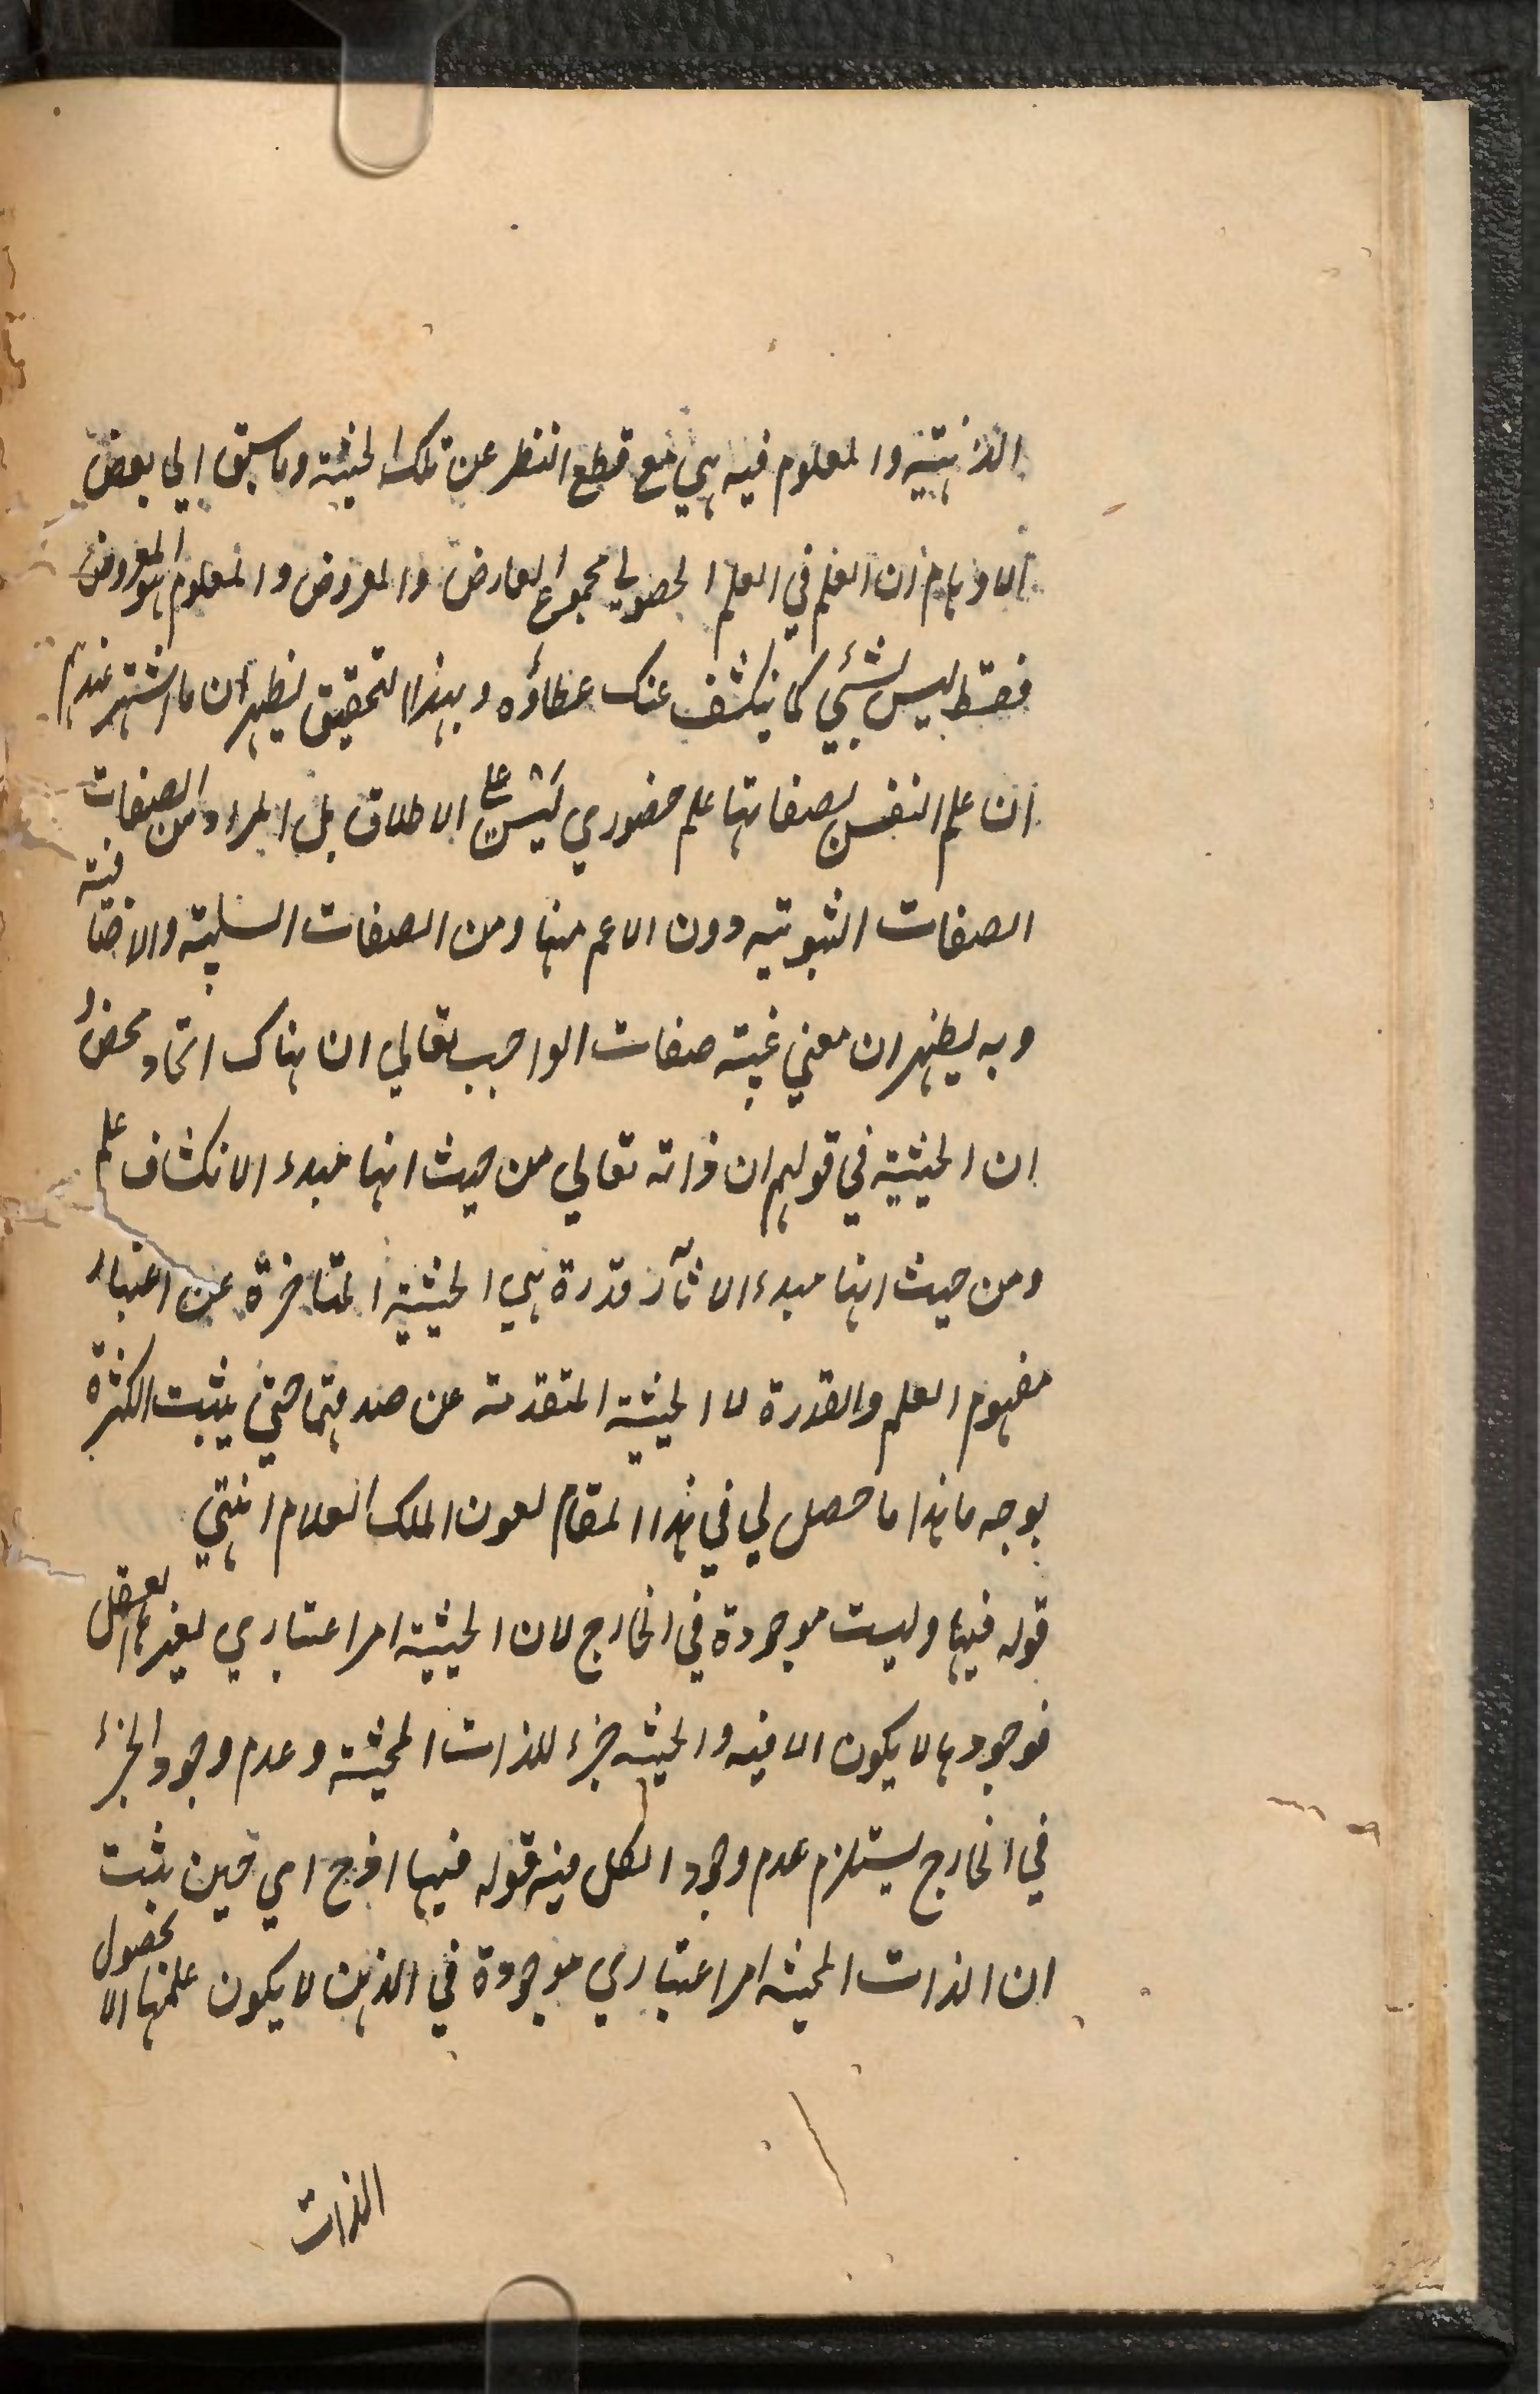 الذهنية والمعلوم فيه هي مع قطع النظر عن تلك الحيثية وما سبق الي بعض
الاوهام ان العلم في العلم الحصولي مجموع العارض والمعروض والمعلوم هو المعروض
فقط ليس بشئي كما ينكشف عنك غطاؤه وبهذا التحقيق يظهر ان ما اشتهر عندهم
ان علم النفس بصفاتها علم حضوري ليس علي الاطلاق بل المراد من الصفات
الصفات الثبوتيه دون الاعم منها ومن الصفات السلبية والاضافية
وبه يظهر ان معني عينية صفات الواجب تعالي ان هناك اتحاد محض و
ان الحيثية في قولهم ان ذاته تعالي من حيث انها مبدء الانكشاف علم
ومن حيث انها مبدء الاثآر قدرة هي الحيثية المتاخرة عن اعتبار
مفهوم العلم والقدرة لا الحيثية المتقدمة عن صدقهما حتي يثبت الكثرة
بوجه ما هذا ما حصل لي في هذا المقام بعون الملك العلام انتهي
قوله فيها وليست موجودة في الخارج لان الحيثية امر اعتباري يعتبرها العقل
فوجودها لا يكون الا فيه والحيثية جزء للذات المحيثة وعدم وجود الجزء
في الخارج يستلزم عدم وجود الكل فيه قوله فيها افرج اي حين يثبت
ان الذات المحيثة امر اعتباري موجودة في الذهن لا يكون علمها الا بحصول
الذات